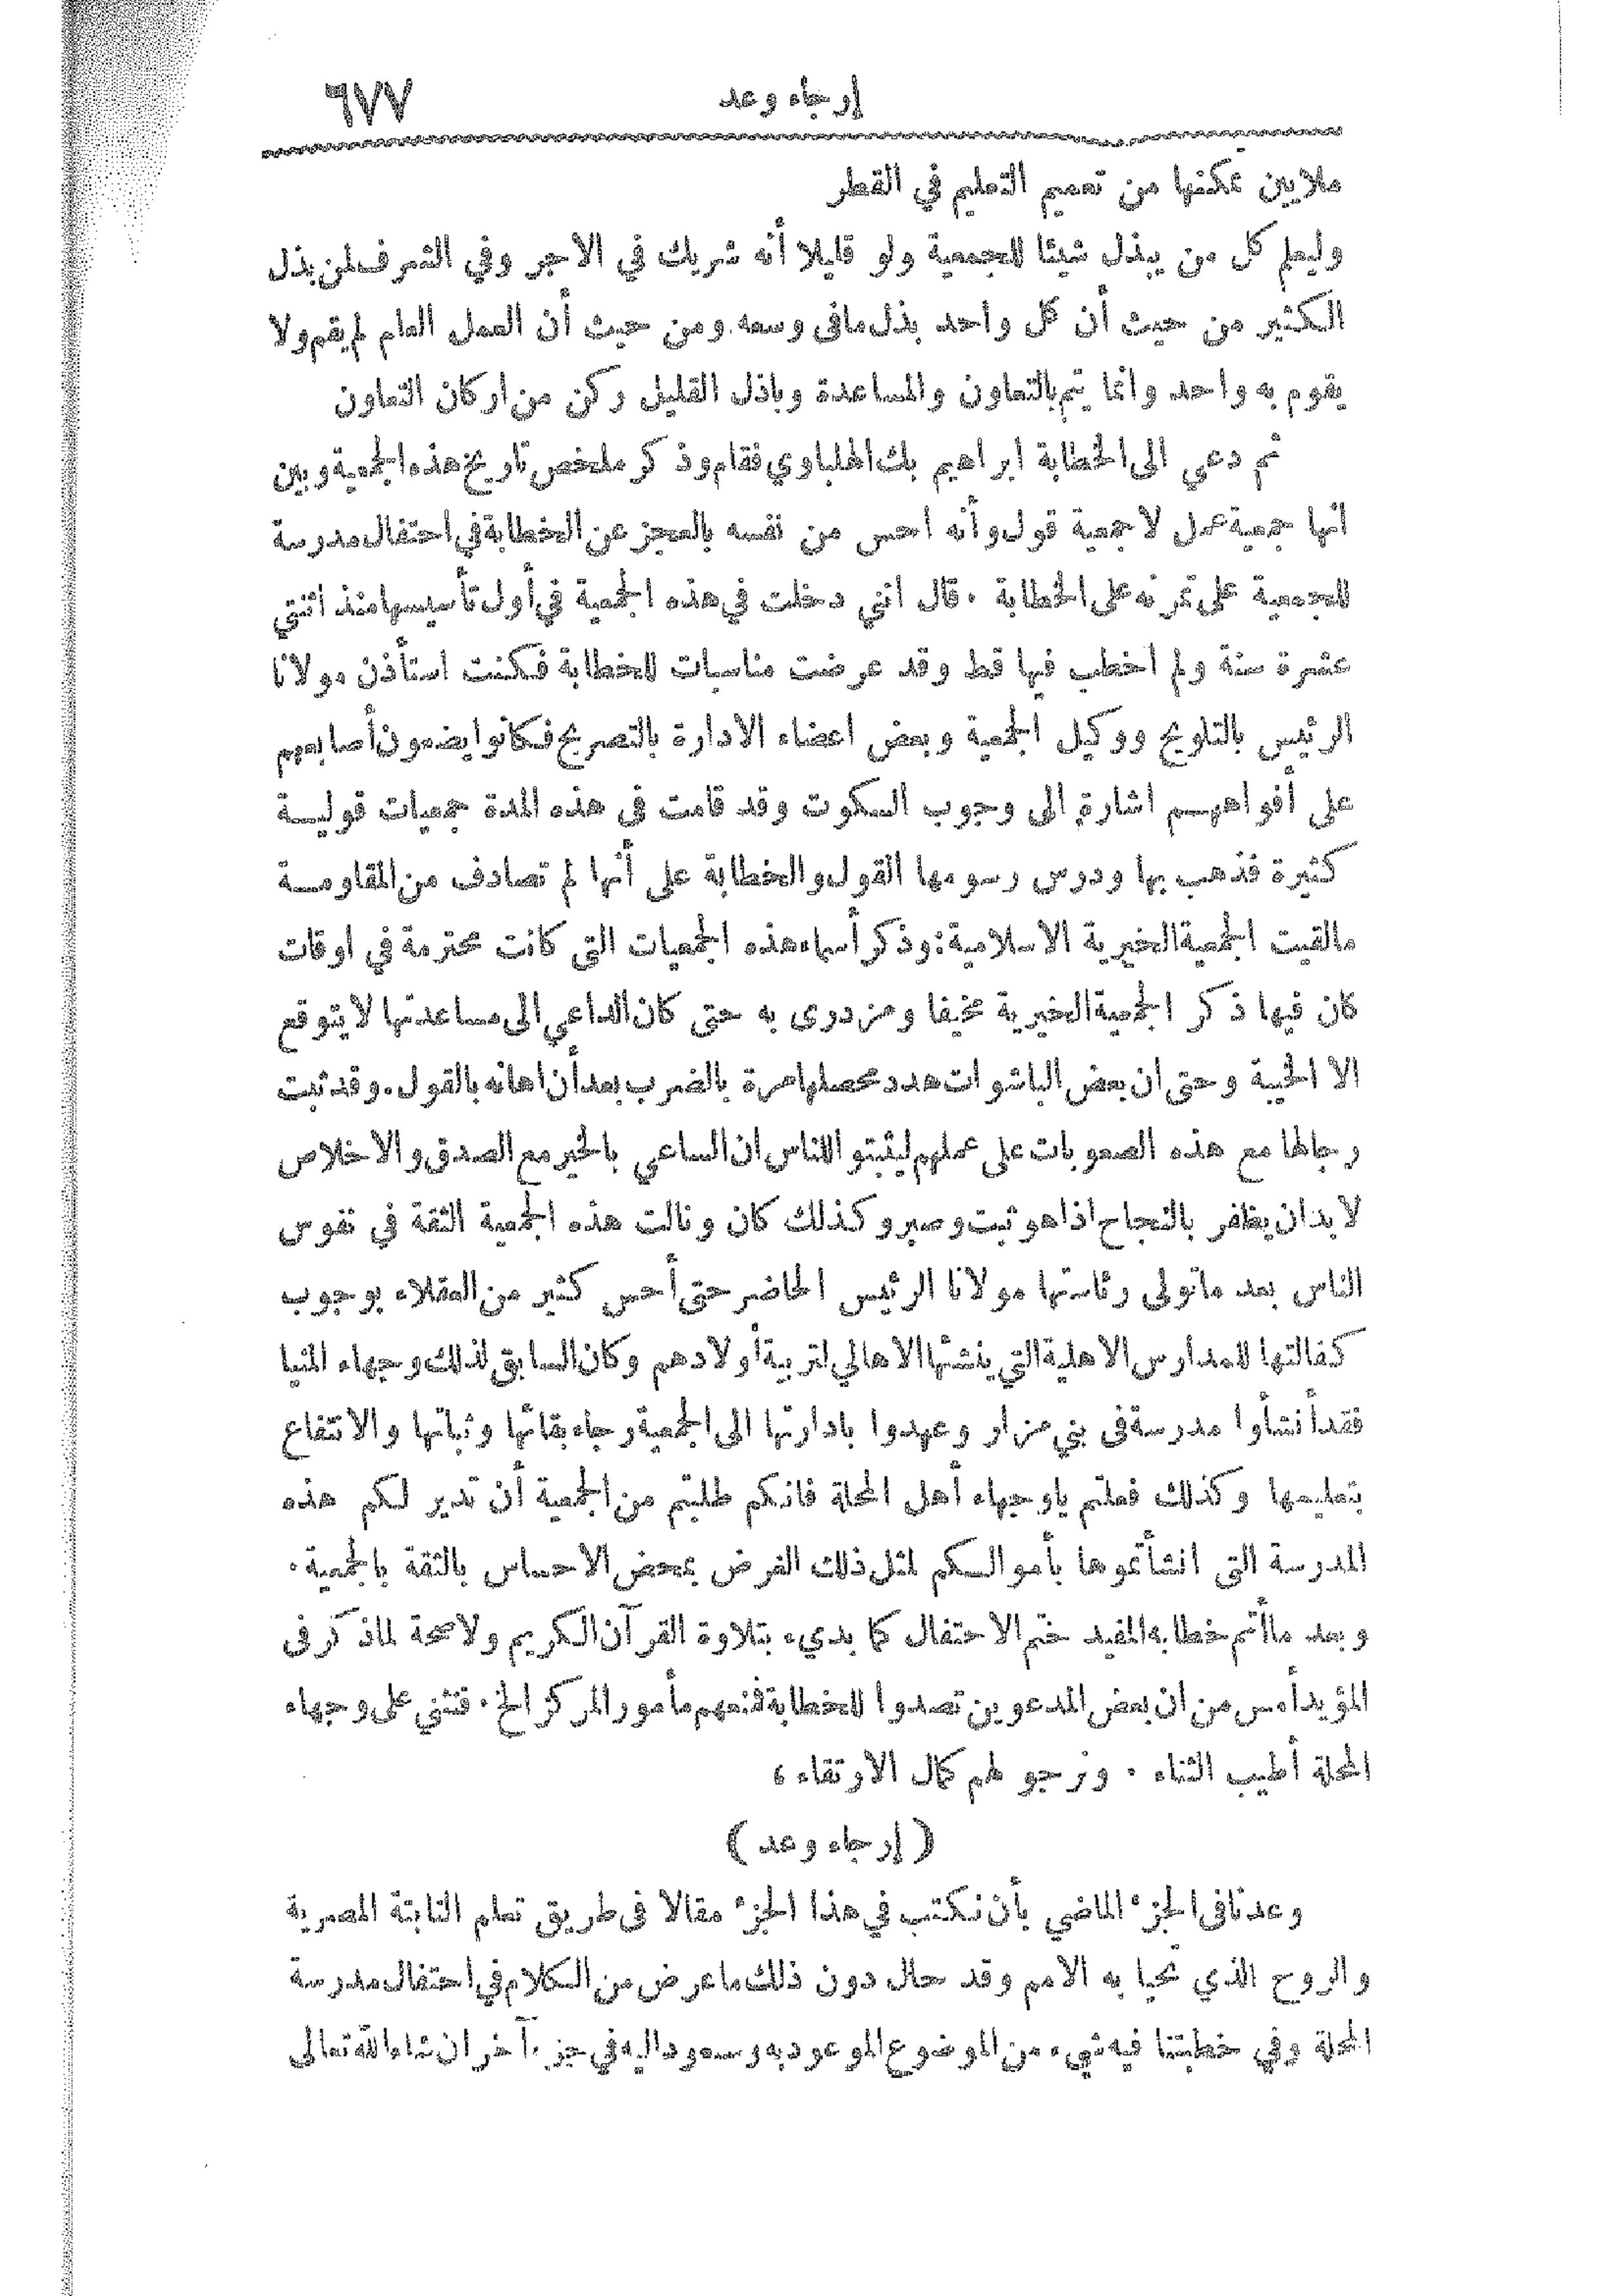 إرجاء وعد ٦٧٧
ملايين يمكنها من تعميم التعليم في القطر
وليعلم كل من يبذل شيئا للجمعية ولو قليلا أنه شريك في الاجر وفي الشرف لمن بذل
الكثير من حيث أن كل واحد بذل مافى وسعه ومن حيث أن العمل العام لم يقم ولا
يقوم به واحد وانما يتم بالتعاون والمساعدة وباذل القليل ركن من اركان التعاون
ثم دعي الى الخطابة ابراهيم بك الهلباوي فقام وذكر ملخص تاريخ هذه الجمعية وبين
انها جمعية عمل لا جمعية قول وأنه احس من نفسه بالعجز عن الخطابة في احتفال مدرسة
للجمعية على تمرنه على الخطابة . قال انني دخلت في هذه الجمعية في أول تأسيسها منذ اثنتي
عشرة سنة ولم اخطب فيها قط وقد عرضت مناسبات للخطابة فكنت استأذن مولانا
الرئيس بالتلويح ووكيل الجمعية وبعض اعضاء الادارة بالتصريح فكانوا يضعون أصابعهم
على أفواههم اشارة الى وجوب السكوت وقد قامت فى هذه المدة جمعيات قولية
كثيرة فذهب بها ودرس رسومها القول والخطابة على أنها لم تصادف من المقاومة
مالقيت الجمعية الخيرية الاسلامية: وذكر أسماء هذه الجمعيات التي كانت محترمة في اوقات
كان فيها ذكر الجمعية الخيرية مخيفا ومزدرى به حتى كان الداعي الى مساعدتها لا يتوقع
الا الخيبة وحتى ان بعض الباشوات هدد محصلها مرة بالضرب بعد أن اهانه بالقول . وقد ثبت
رجالها مع هذه الصعوبات على عملهم ليثبتوا للناس ان الساعي بالخير مع الصدق والاخلاص
لا بد ان يظفر بالنجاح اذا هو ثبت وصبر وكذلك كان ونالت هذه الجمعية الثقة في نفوس
الناس بعد ماتولى رئاستها مولانا الرئيس الحاضر حتى أحس كثير من العقلاء بوجوب
كفالتها للمدارس الاهلية التي ينشئها الاهالي لتربية أولادهم وكان السابق لذلك وجهاء المنيا
فقد أنشأوا مدرسة فى بني مزار وعهدوا بادارتها الى الجمعية رجاء بقائها وثباتها والانتفاع
بتعليمها وكذلك فعلتم ياوجهاء أهل المحلة فانكم طلبتم من الجمعية أن تدير لكم هذه
المدرسة التي انشأتموها بأموالكم لمثل ذلك الغرض بمحض الاحساس بالثقة بالجمعية .
وبعد ماأتم خطابه المفيد ختم الاحتفال كما بديء بتلاوة القرآن الكريم ولا صحة لما ذكر فى
المؤيد أمس من ان بعض المدعوين تصدوا للخطابة فمنعهم مأمور المركز الخ . فنثني على وجهاء
المحلة أطيب الثناء . ونرجو لهم كمال الارتقاء ،
( إرجاء وعد )
وعدنا فى الجزء الماضي بأن نكتب في هذا الجزء مقالا فى طريق تعلم النابتة المصرية
والروح الذي تحيا به الامم وقد حال دون ذلك ما عرض من الكلام في احتفال مدرسة
المحلة وفي خطبتنا فيه شيء من الموضوع الموعود به وسنعود اليه في جزء آخر ان شاء الله تعالى